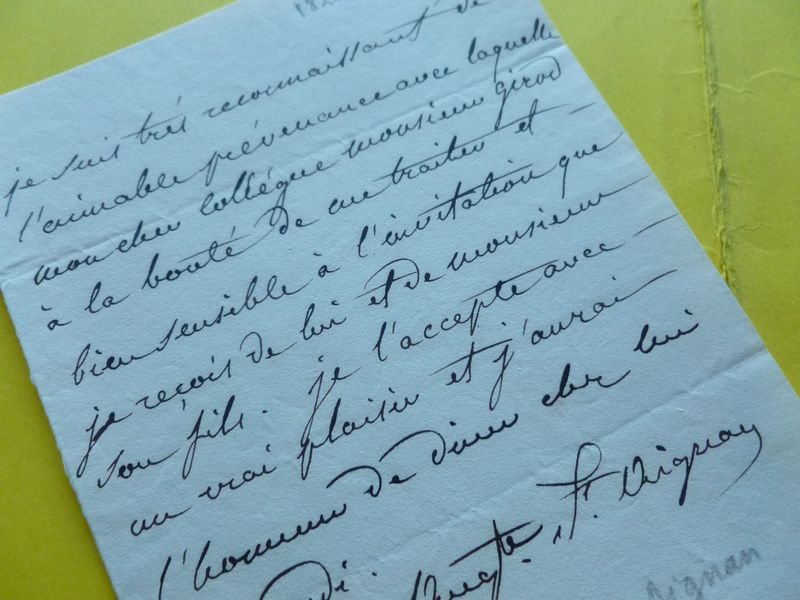 182
je suis très reconnaissant de
l'aimable prévenance avec laquelle
mon cher collégue monsieur girod
à la bonté de me traiter et
bien sensible à l'invitation que
je reçois de lui et de monsieur
son fils. je l'accepte avec
un vrai plaisir et j'aurai
l'honneur de diner chez lui
di.
Auguste St. Aignan
Aignan